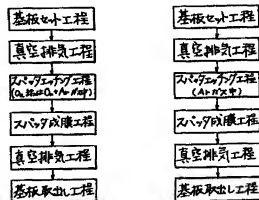 基板セット工程
真空排気工程
スパッタエッチング工程
(O₂ または O₂+Ar ガス中)
スパッタ成膜工程
真空排気工程
基板取出し工程
基板セット工程
真空排気工程
スパッタエッチング工程
(Arガス中)
スパッタ成膜工程
真空排気工程
基板取出し工程